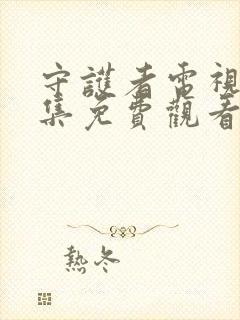 守護者電視
集免費觀看
熱冬